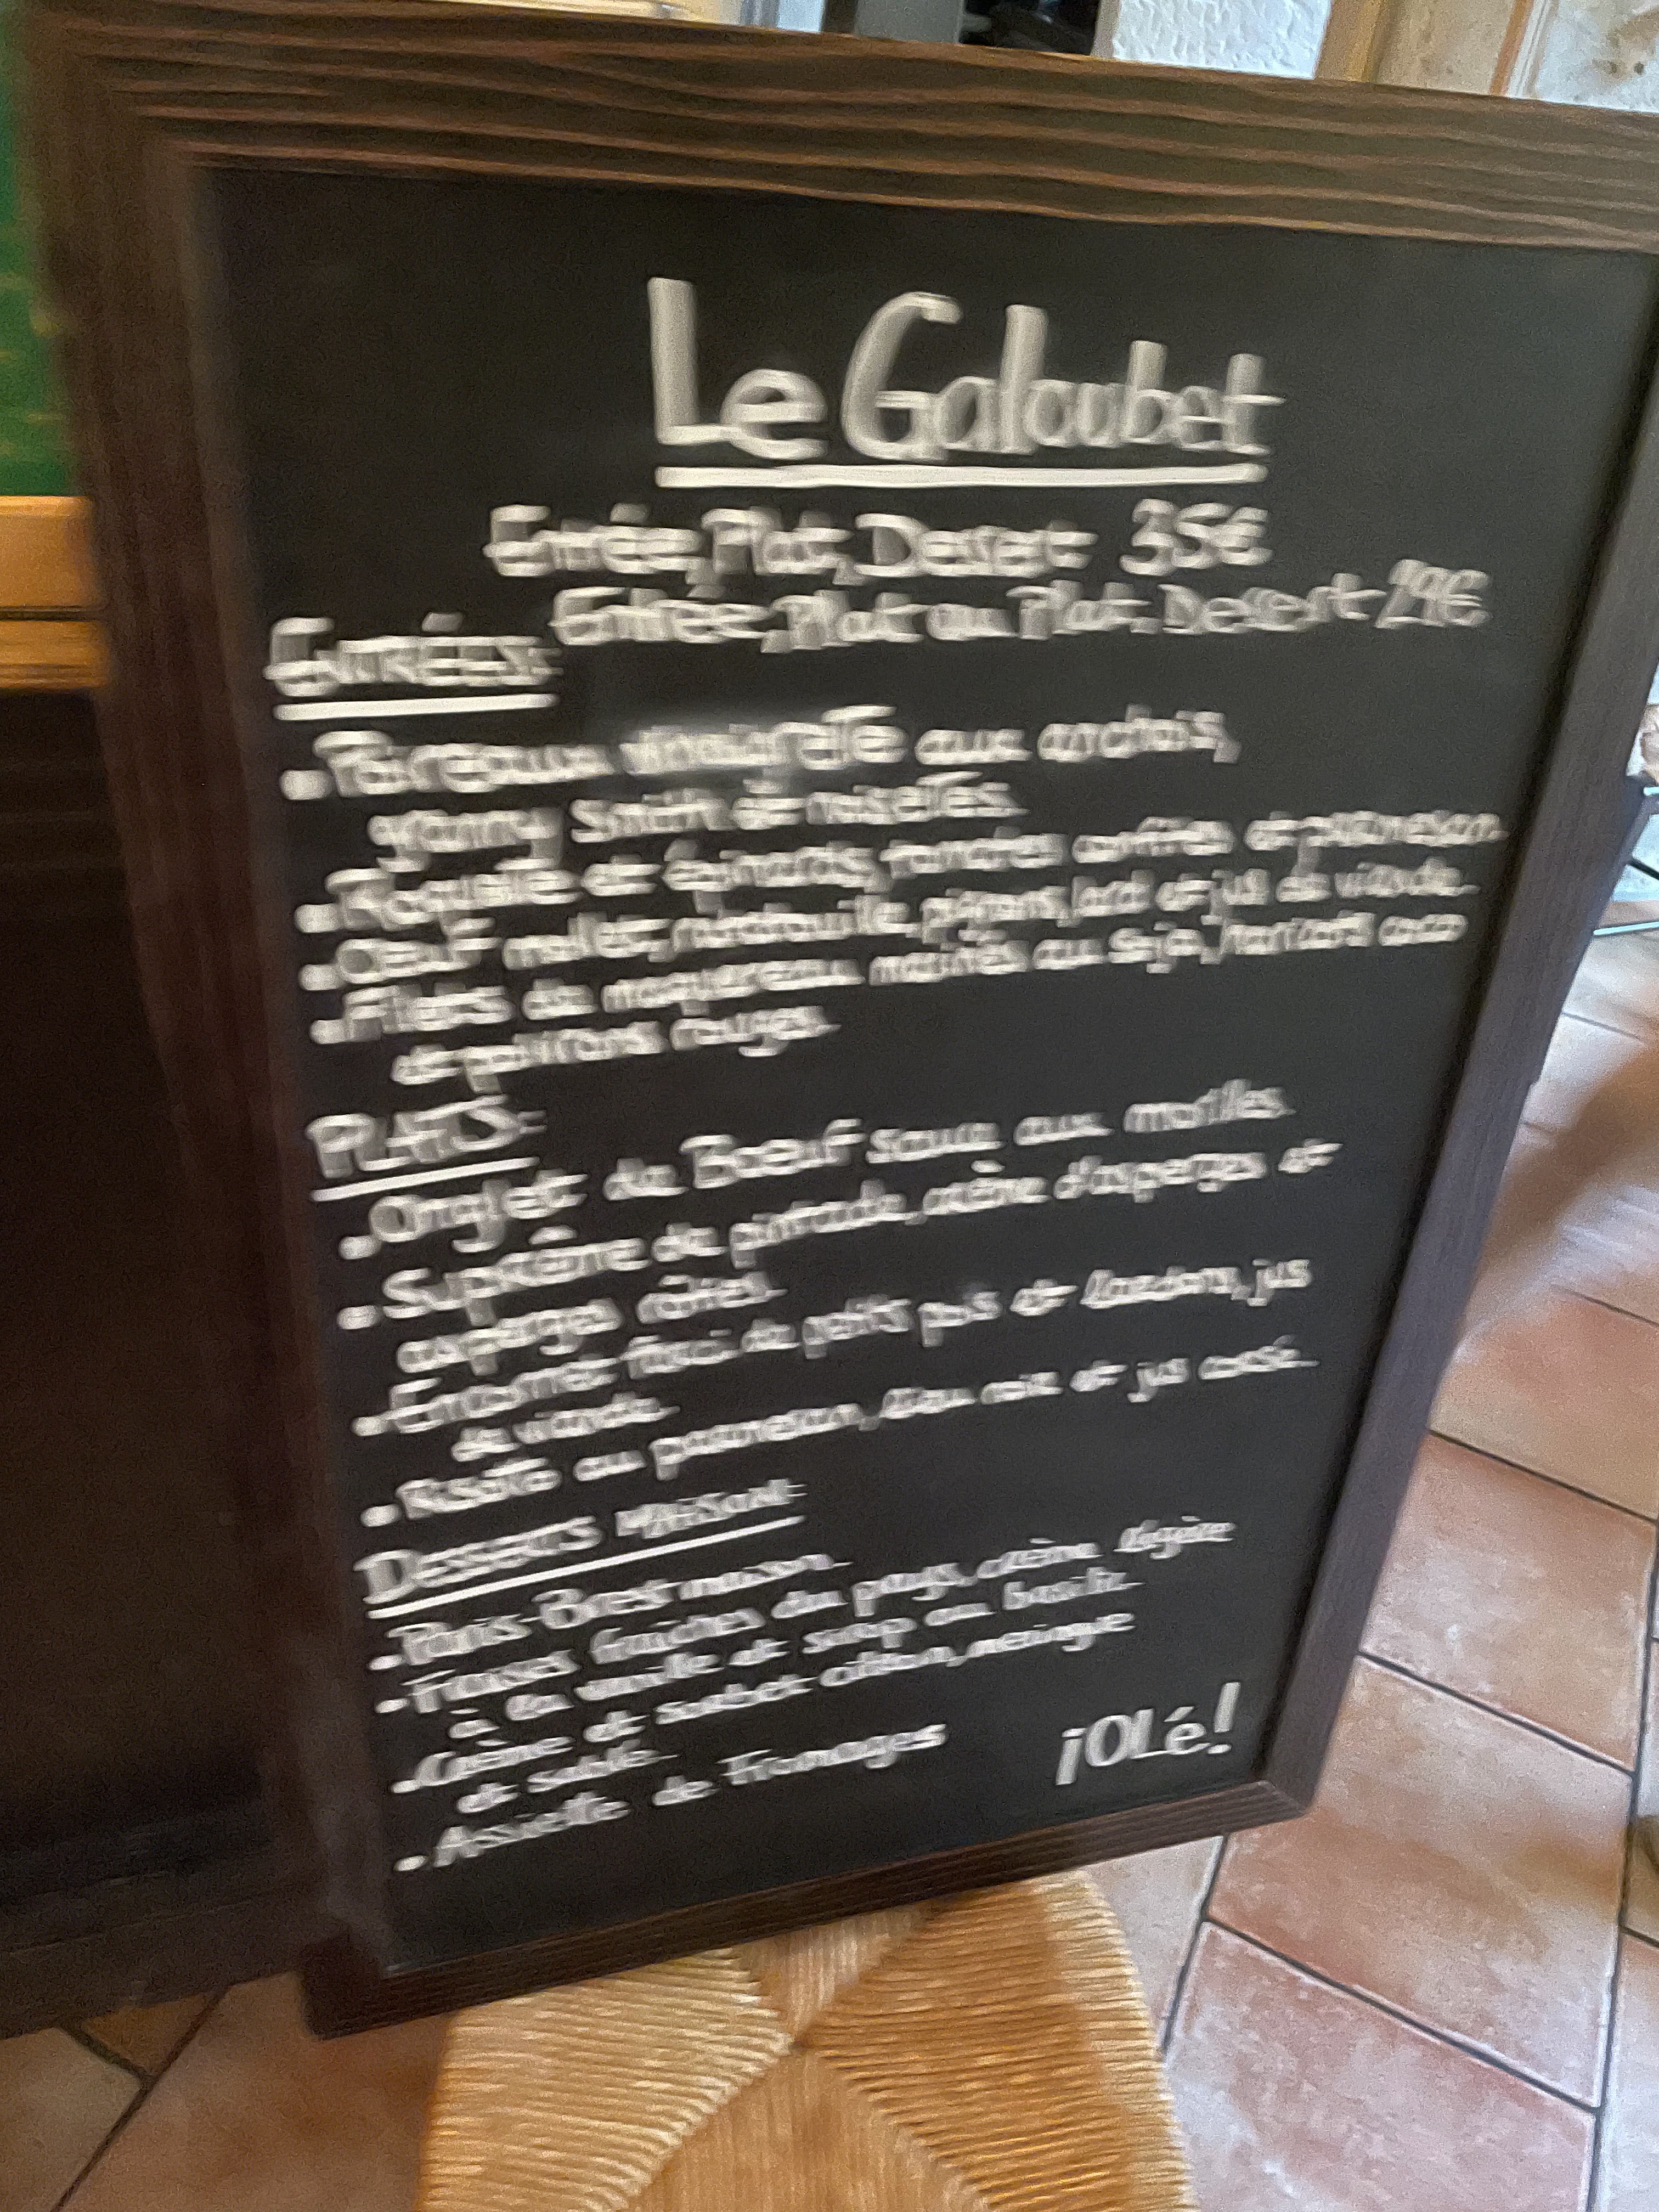 Le Galoubet
Entrée, Plat, Dessert 35€
Entrée, Plat ou Plat, Dessert 29€
ENTRÉES:
• Poireaux vinaigrette aux anchois,
granny Smith et noisettes.
• Roquette et épinards, tomates confites et parmesan.
• Oeuf mollet, ratatouille, piquillos, lard et jus de viande.
• Filets de maquereau marinés au Soja, haricots coco
et poivrons rouges.
PLATS:
• Onglet de Boeuf sauce aux morilles.
• Suprême de pintade, crème d'asperges et
asperges rôties.
• Encornet farci de petits pois et lardons, jus
de viande.
• Risotto au parmesan, lieu noir et jus corsé.
DESSERTS MAISON:
• Paris-Brest maison.
• Fraises fraîches du pays, crème légère
à la vanille et sirop au basilic.
• Crème et sorbet citron, meringue
et sablé.
• Assiette de Fromages
¡OLé!